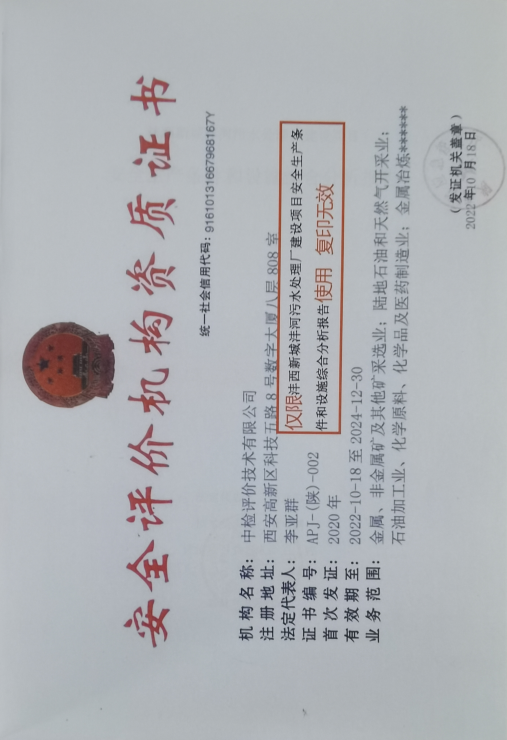 安全评价机构资质证书
统一社会信用代码：91610131667968167Y
机构名称：中检评价技术有限公司
注册地址：西安高新区科技五路8号数字大厦八层808室
法定代表人：李亚群
证书编号：APJ-(陕)-002
首次发证：2020年
有效期至：2022-10-18至2024-12-30
业务范围：金属、非金属矿及其他矿采选业；陆地石油和天然气开采业；
石油加工业、化学原料、化学品及医药制造业；金属冶炼******
仅限沣西新城沣河污水处理厂建设项目安全生产条
件和设施综合分析报告使用 复印无效
（发证机关盖章）
2022年10月18日